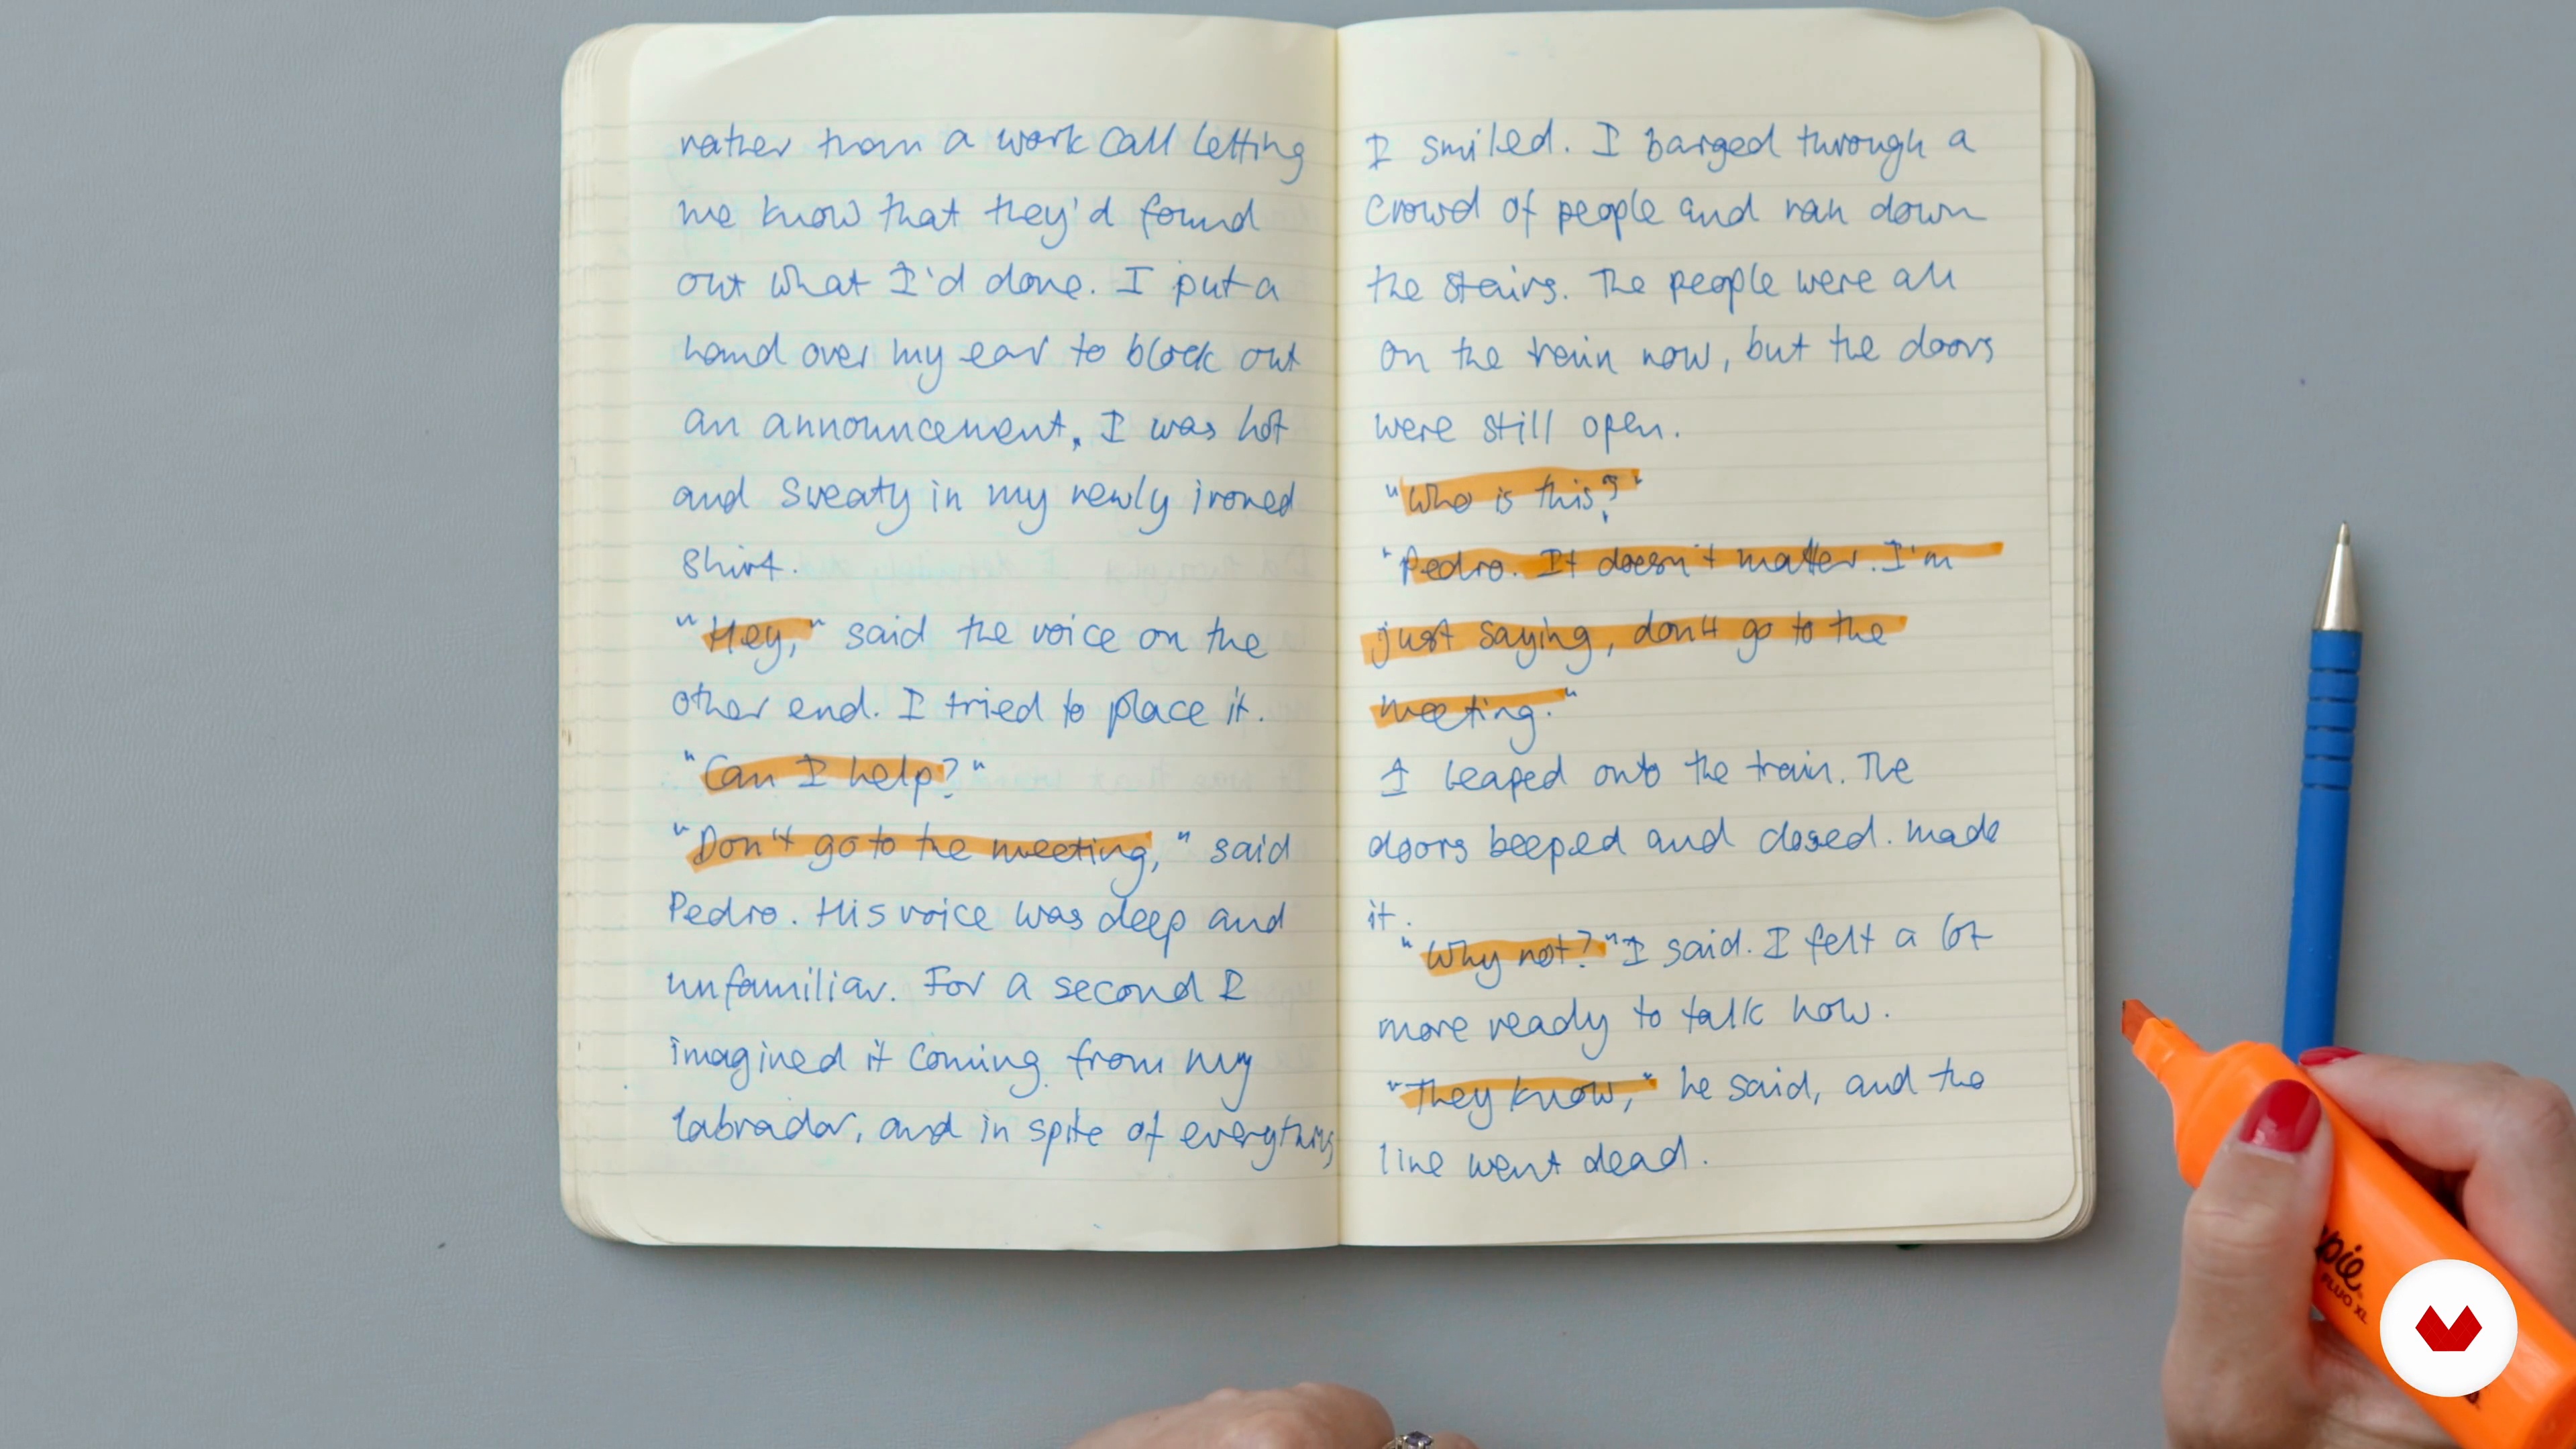 rather than a work call letting
me know that they'd found
out what I'd done. I put a
hand over my ear to block out
an announcement. I was hot
and sweaty in my newly ironed
shirt.
"Hey," said the voice on the
other end. I tried to place it.
"Can I help?"
"Don't go to the meeting," said
Pedro. His voice was deep and
unfamiliar. For a second I
imagined it coming from my
labrador, and in spite of everything
I smiled. I barged through a
crowd of people and ran down
the stairs. The people were all
on the train now, but the doors
were still open.
"Who is this?"
"Pedro. It doesn't matter. I'm
just saying, don't go to the
meeting."
I leaped onto the train. The
doors beeped and closed. Made
it.
"Why not?" I said. I felt a lot
more ready to talk now.
"They know," he said, and the
line went dead.
pie
FLUO XL